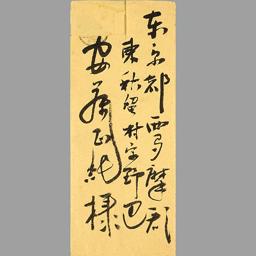 東京都西多摩郡
東秋留村字野辺
安藤正純様